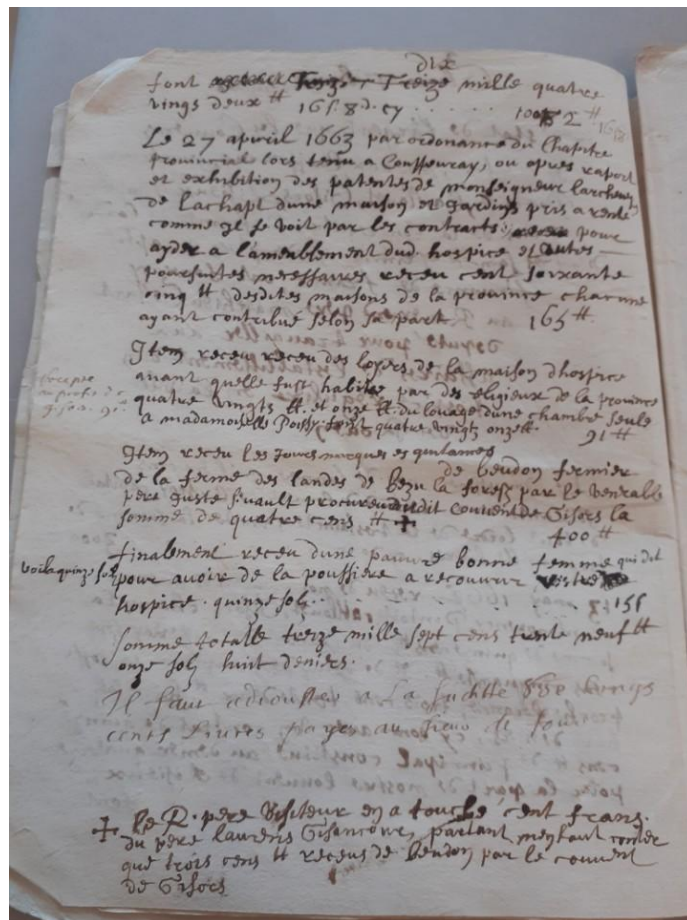 dix
font Treize mille quatre
vings deux ᵗᵗ 16ˢ. 8ᵈ. cy
Le 27 apvril 1663 par ordonance du Chapitre
provincial lors tenu a Couffeuray, ou apres raport
et exhibition des patentes de monseigneur
de lachapt dune maison et Jardins pris a rente
comme Il se voit par les contracts pour
ayder a lameublement dud. hospice et autres
poursuittes necessaires receu cent soixante
cinq ᵗᵗ desdites maisons de la province chacune
ayant contribué selon sa part 165 ᵗᵗ.
Item receu receu des loyers de la maison dhospice
avant quelle fust habitee par des religieux de la province
quatre vingts ᵗᵗ. et onze ᵗᵗ. du louage dune chambre seule
a madamoiselle Poissy. font quatre vingtz onze ᵗᵗ.
91 ᵗᵗ
Item receu les Jours marques es quitances
de beudon fermier
de la ferme des landes de bezu la forest par le venerable
pere Juste procureur dudit couvent de Gisors la
somme de quatre cens ᵗᵗ ✝
400 ᵗᵗ
finalement receu dune pauvre bonne femme qui dit
voila quinze solz
pour avoir de la poussiere a recouvrir
hospice. quinze solz 15ˢ
Somme totalle treize mille sept cens trente neuf ᵗᵗ
onze solz huit deniers.
Il faut adiouster a La susditte
cents Livres payes au sieur de
✝ le R. pere Visiteur en a touché cent frans.
du pere laurens Gisancour, partant
que trois cens ᵗᵗ receus de beudon par le couvent
de Gisors